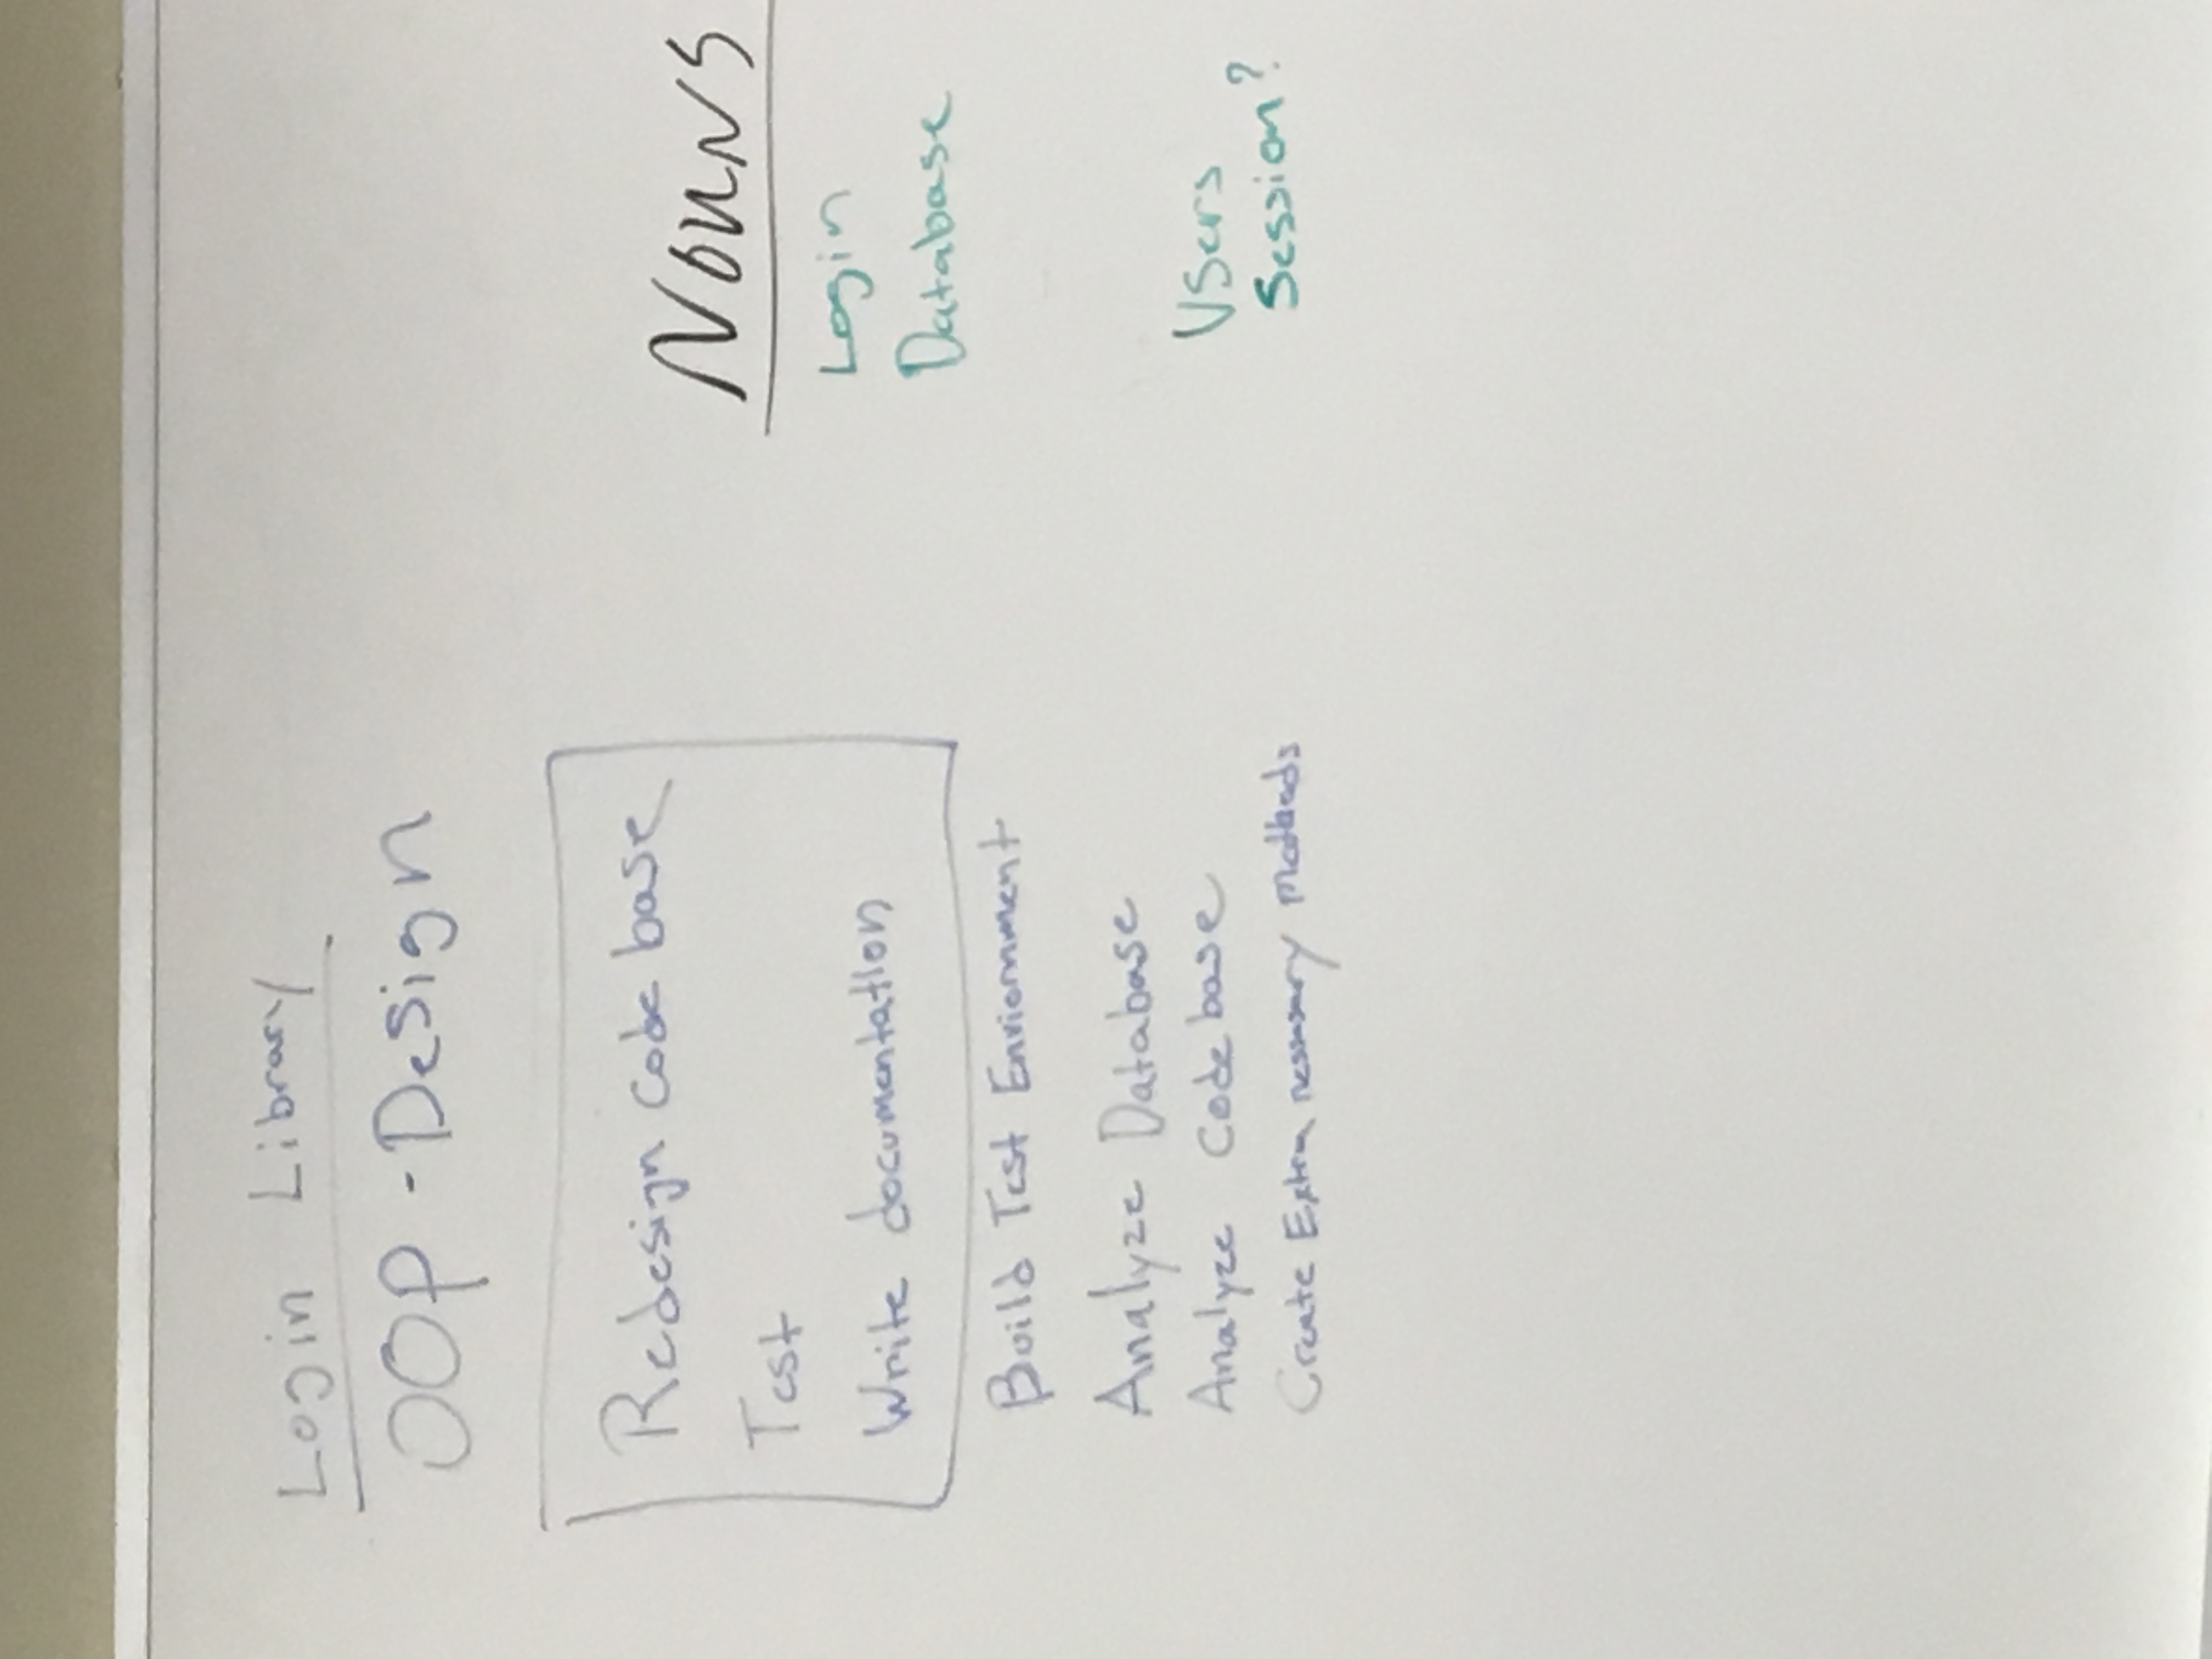 Login Library
OOP - Design
Redesign code base
Test
Write documentation
Build Test Enviornment
Analyze Database
Analyze Code base
Create Extra nessesary methods
NOUNS
Login
Database
Users
Session?